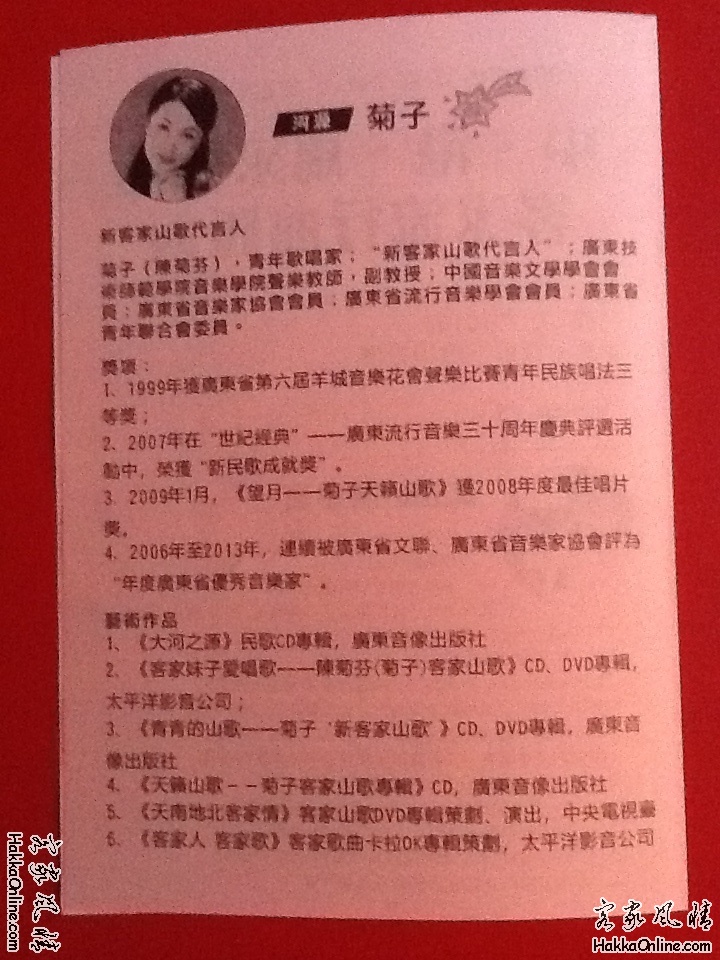 河源 菊子
新客家山歌代言人
菊子（陳菊芬），青年歌唱家；“新客家山歌代言人”；廣東技
術師範學院音樂學院聲樂教師，副教授；中國音樂文學學會會
員；廣東省音樂家協會會員；廣東省流行音樂學會會員；廣東省
青年聯合會委員。
獎項：
1、1999年獲廣東省第六屆羊城音樂花會聲樂比賽青年民族唱法三
等獎；
2、2007年在“世紀經典”——廣東流行音樂三十周年慶典評選活
動中，榮獲“新民歌成就獎”。
3、2009年1月，《望月——菊子天籟山歌》獲2008年度最佳唱片
獎。
4、2006年至2013年，連續被廣東省文聯、廣東省音樂家協會評為
“年度廣東省優秀音樂家”。
藝術作品
1、《大河之源》民歌CD專輯，廣東音像出版社
2、《客家妹子愛唱歌——陳菊芬(菊子)客家山歌》CD、DVD專輯，
太平洋影音公司；
3、《青青的山歌——菊子‘新客家山歌’》CD、DVD專輯，廣東音
像出版社
4、《天籟山歌--菊子客家山歌專輯》CD，廣東音像出版社
5、《天南地北客家情》客家山歌DVD專輯策劃、演出，中央電視臺
6、《客家人 客家歌》客家歌曲卡拉OK專輯策劃，太平洋影音公司
客家風情
HakkaOnline.com
客家風情
HakkaOnline.com